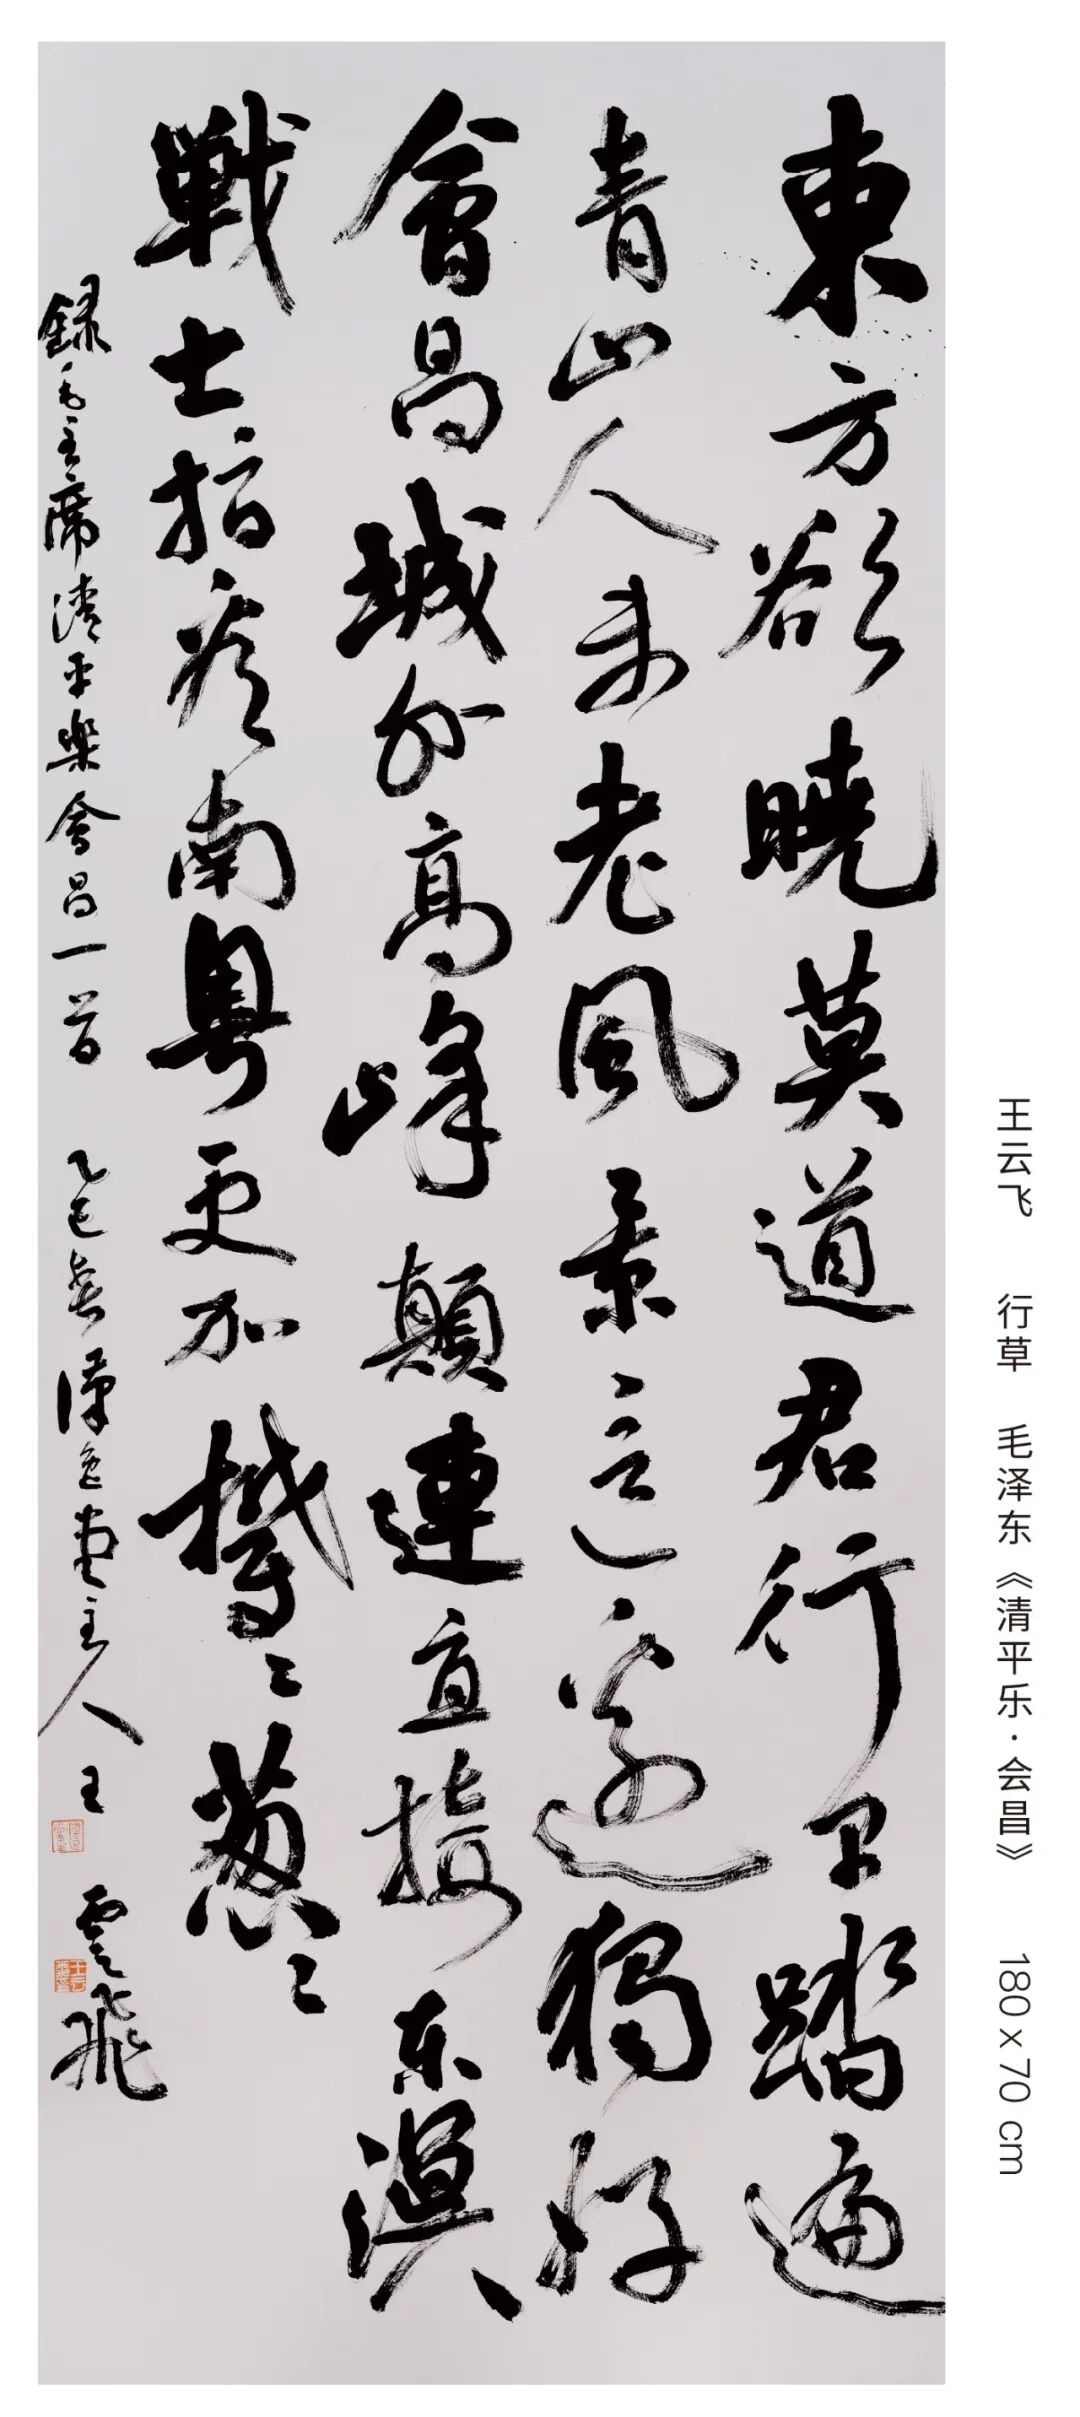 東方欲曉莫道君行早踏遍
青山人未老風景這邊獨好
會昌城外高峰顛連直接东溟
戰士指看南粵更加鬱〻葱〻
録毛主席清平樂會昌一首 乙巳春 主人王雲飛
王云飞 行草 毛泽东《清平乐·会昌》 180 x 70 cm